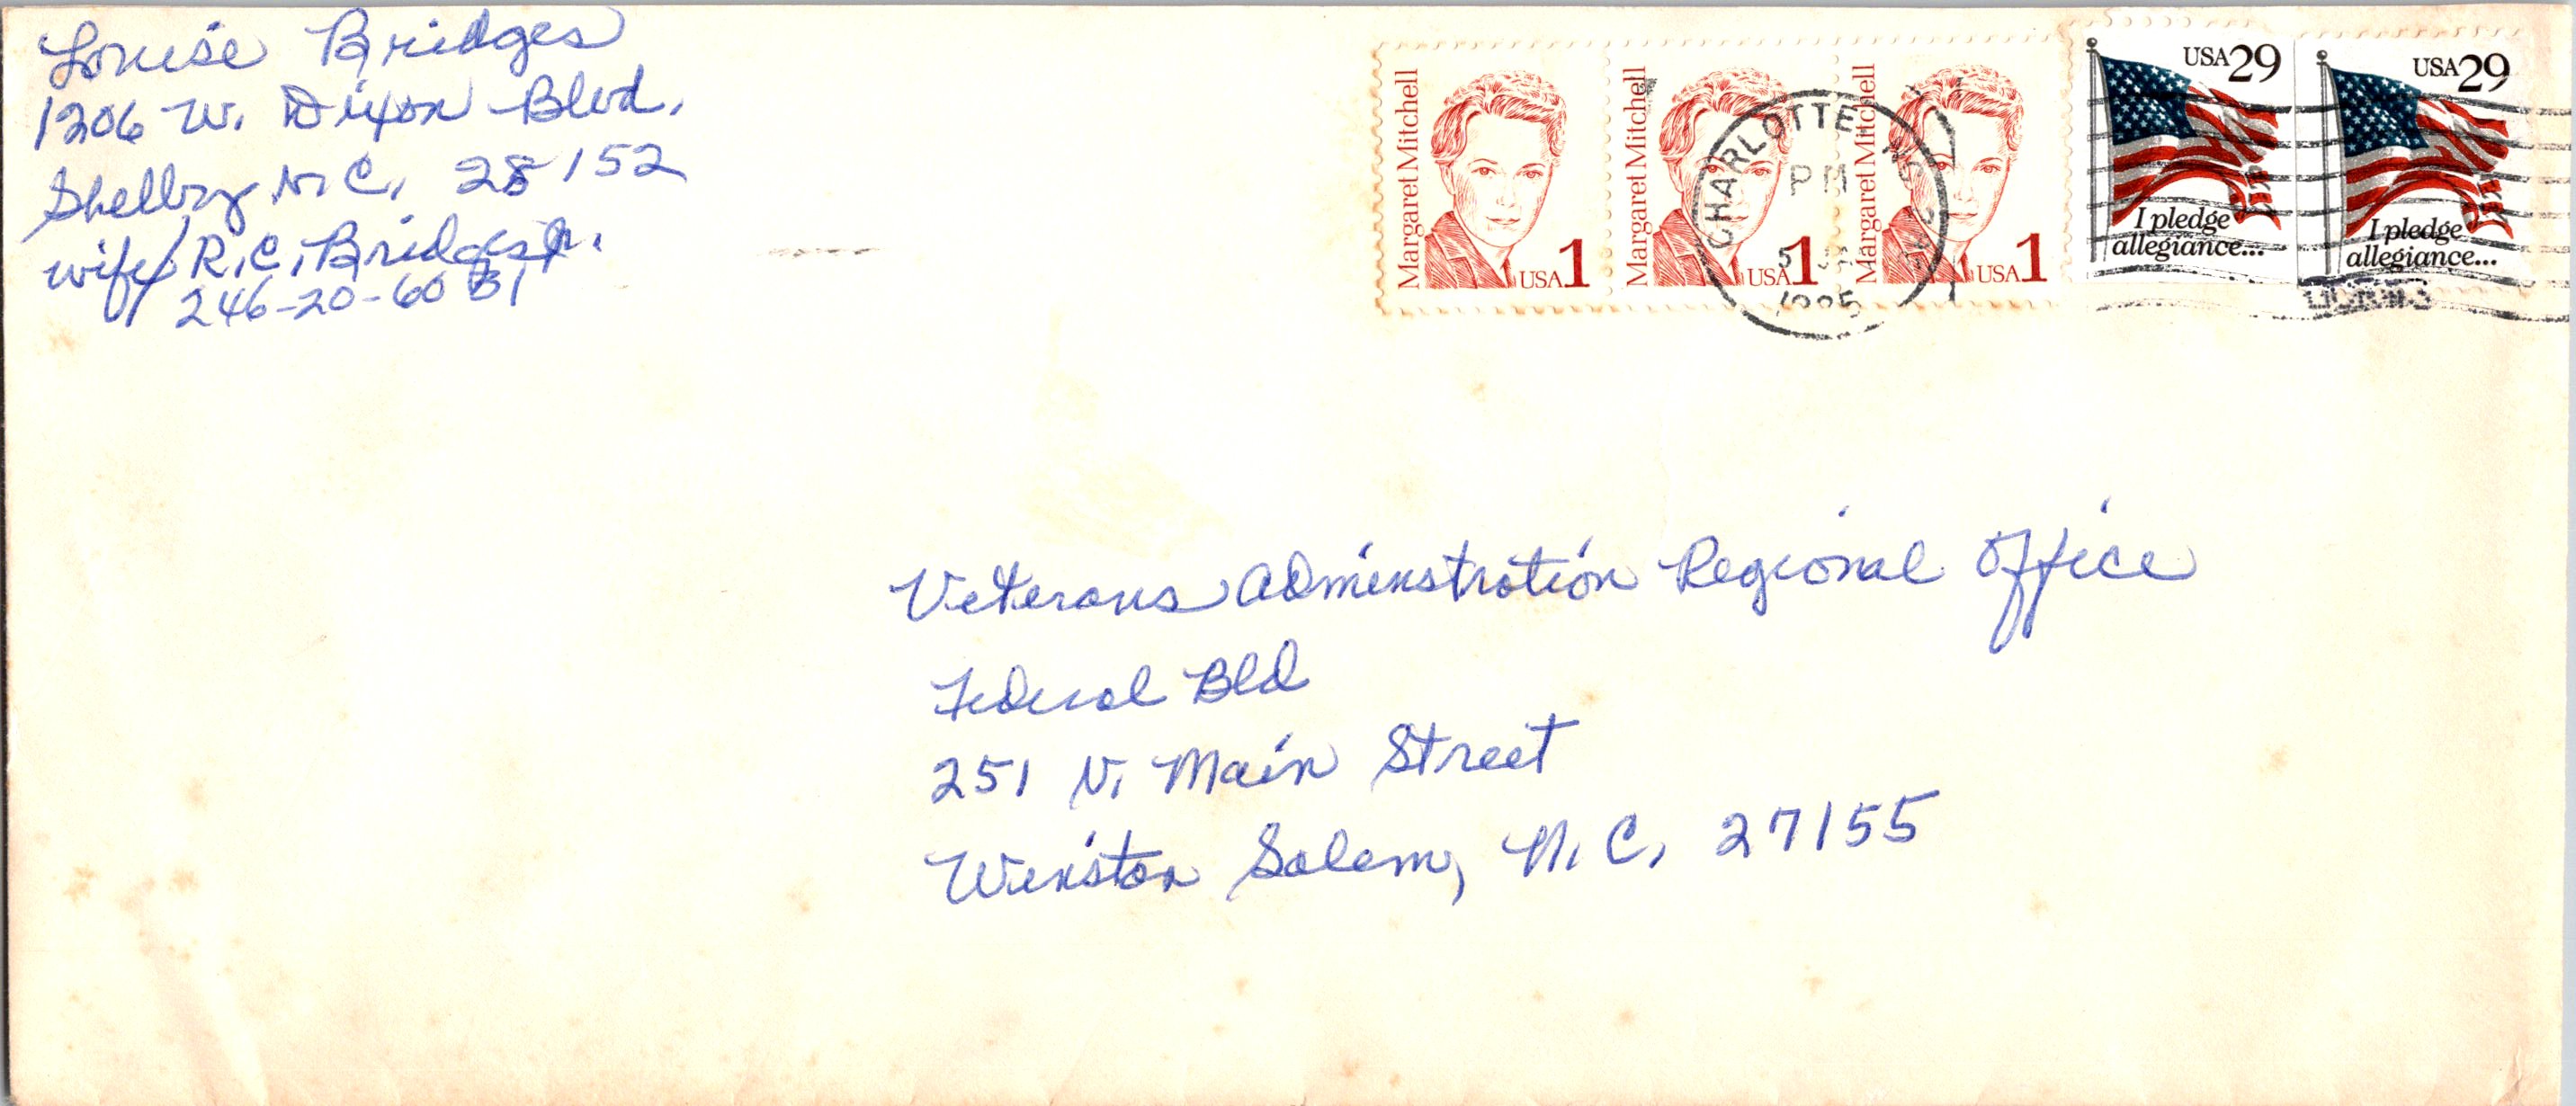 Louise Bridges
1206 W. Dixon Blvd.
Shelby, N.C. 28152
wife/R.C. Bridges Jr.
Margaret Mitchell
USA 1
Margaret Mitchell
USA 1
Margaret Mitchell
USA 1
CHARLOTTE NC
PM
5
1995
USA 29
I pledge
allegiance...
USA 29
I pledge
allegiance...
Veterans Adminstration Regional Office
Federal Bld
251 N. Main Street
Winston Salem, N.C. 27155